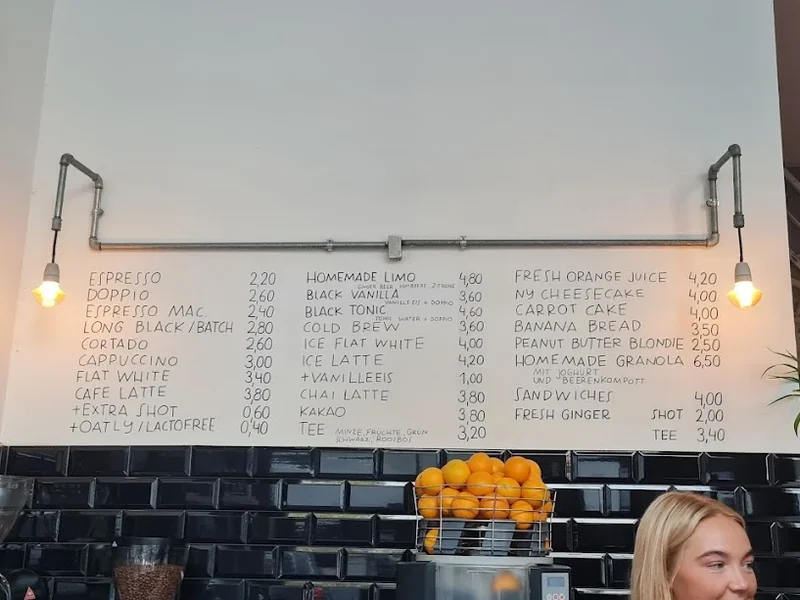 ESPRESSO 2,20
DOPPIO 2,60
ESPRESSO MAC. 2,40
LONG BLACK/BATCH 2,80
CORTADO 2,60
CAPPUCCINO 3,00
FLAT WHITE 3,40
CAFE LATTE 3,80
+EXTRA SHOT 0,60
+OATLY/LACTOFREE 0,40
HOMEMADE LIMO 4,80
GINGER BEER, HIMBEERE, ZITRONE
BLACK VANILLA 3,60
VANILLEEIS + DOPPIO
BLACK TONIC 4,60
TONIC WATER + DOPPIO
COLD BREW 3,60
ICE FLAT WHITE 4,00
ICE LATTE 4,20
+VANILLEEIS 1,00
CHAI LATTE 3,80
KAKAO 3,80
TEE MINZE, FRÜCHTE, GRÜN 3,20
SCHWARZ, ROOIBOS
FRESH ORANGE JUICE 4,20
NY CHEESECAKE 4,00
CARROT CAKE 4,00
BANANA BREAD 3,50
PEANUT BUTTER BLONDIE 2,50
HOMEMADE GRANOLA 6,50
MIT JOGHURT
UND BEERENKOMPOTT
SANDWICHES 4,00
FRESH GINGER SHOT 2,00
TEE 3,40